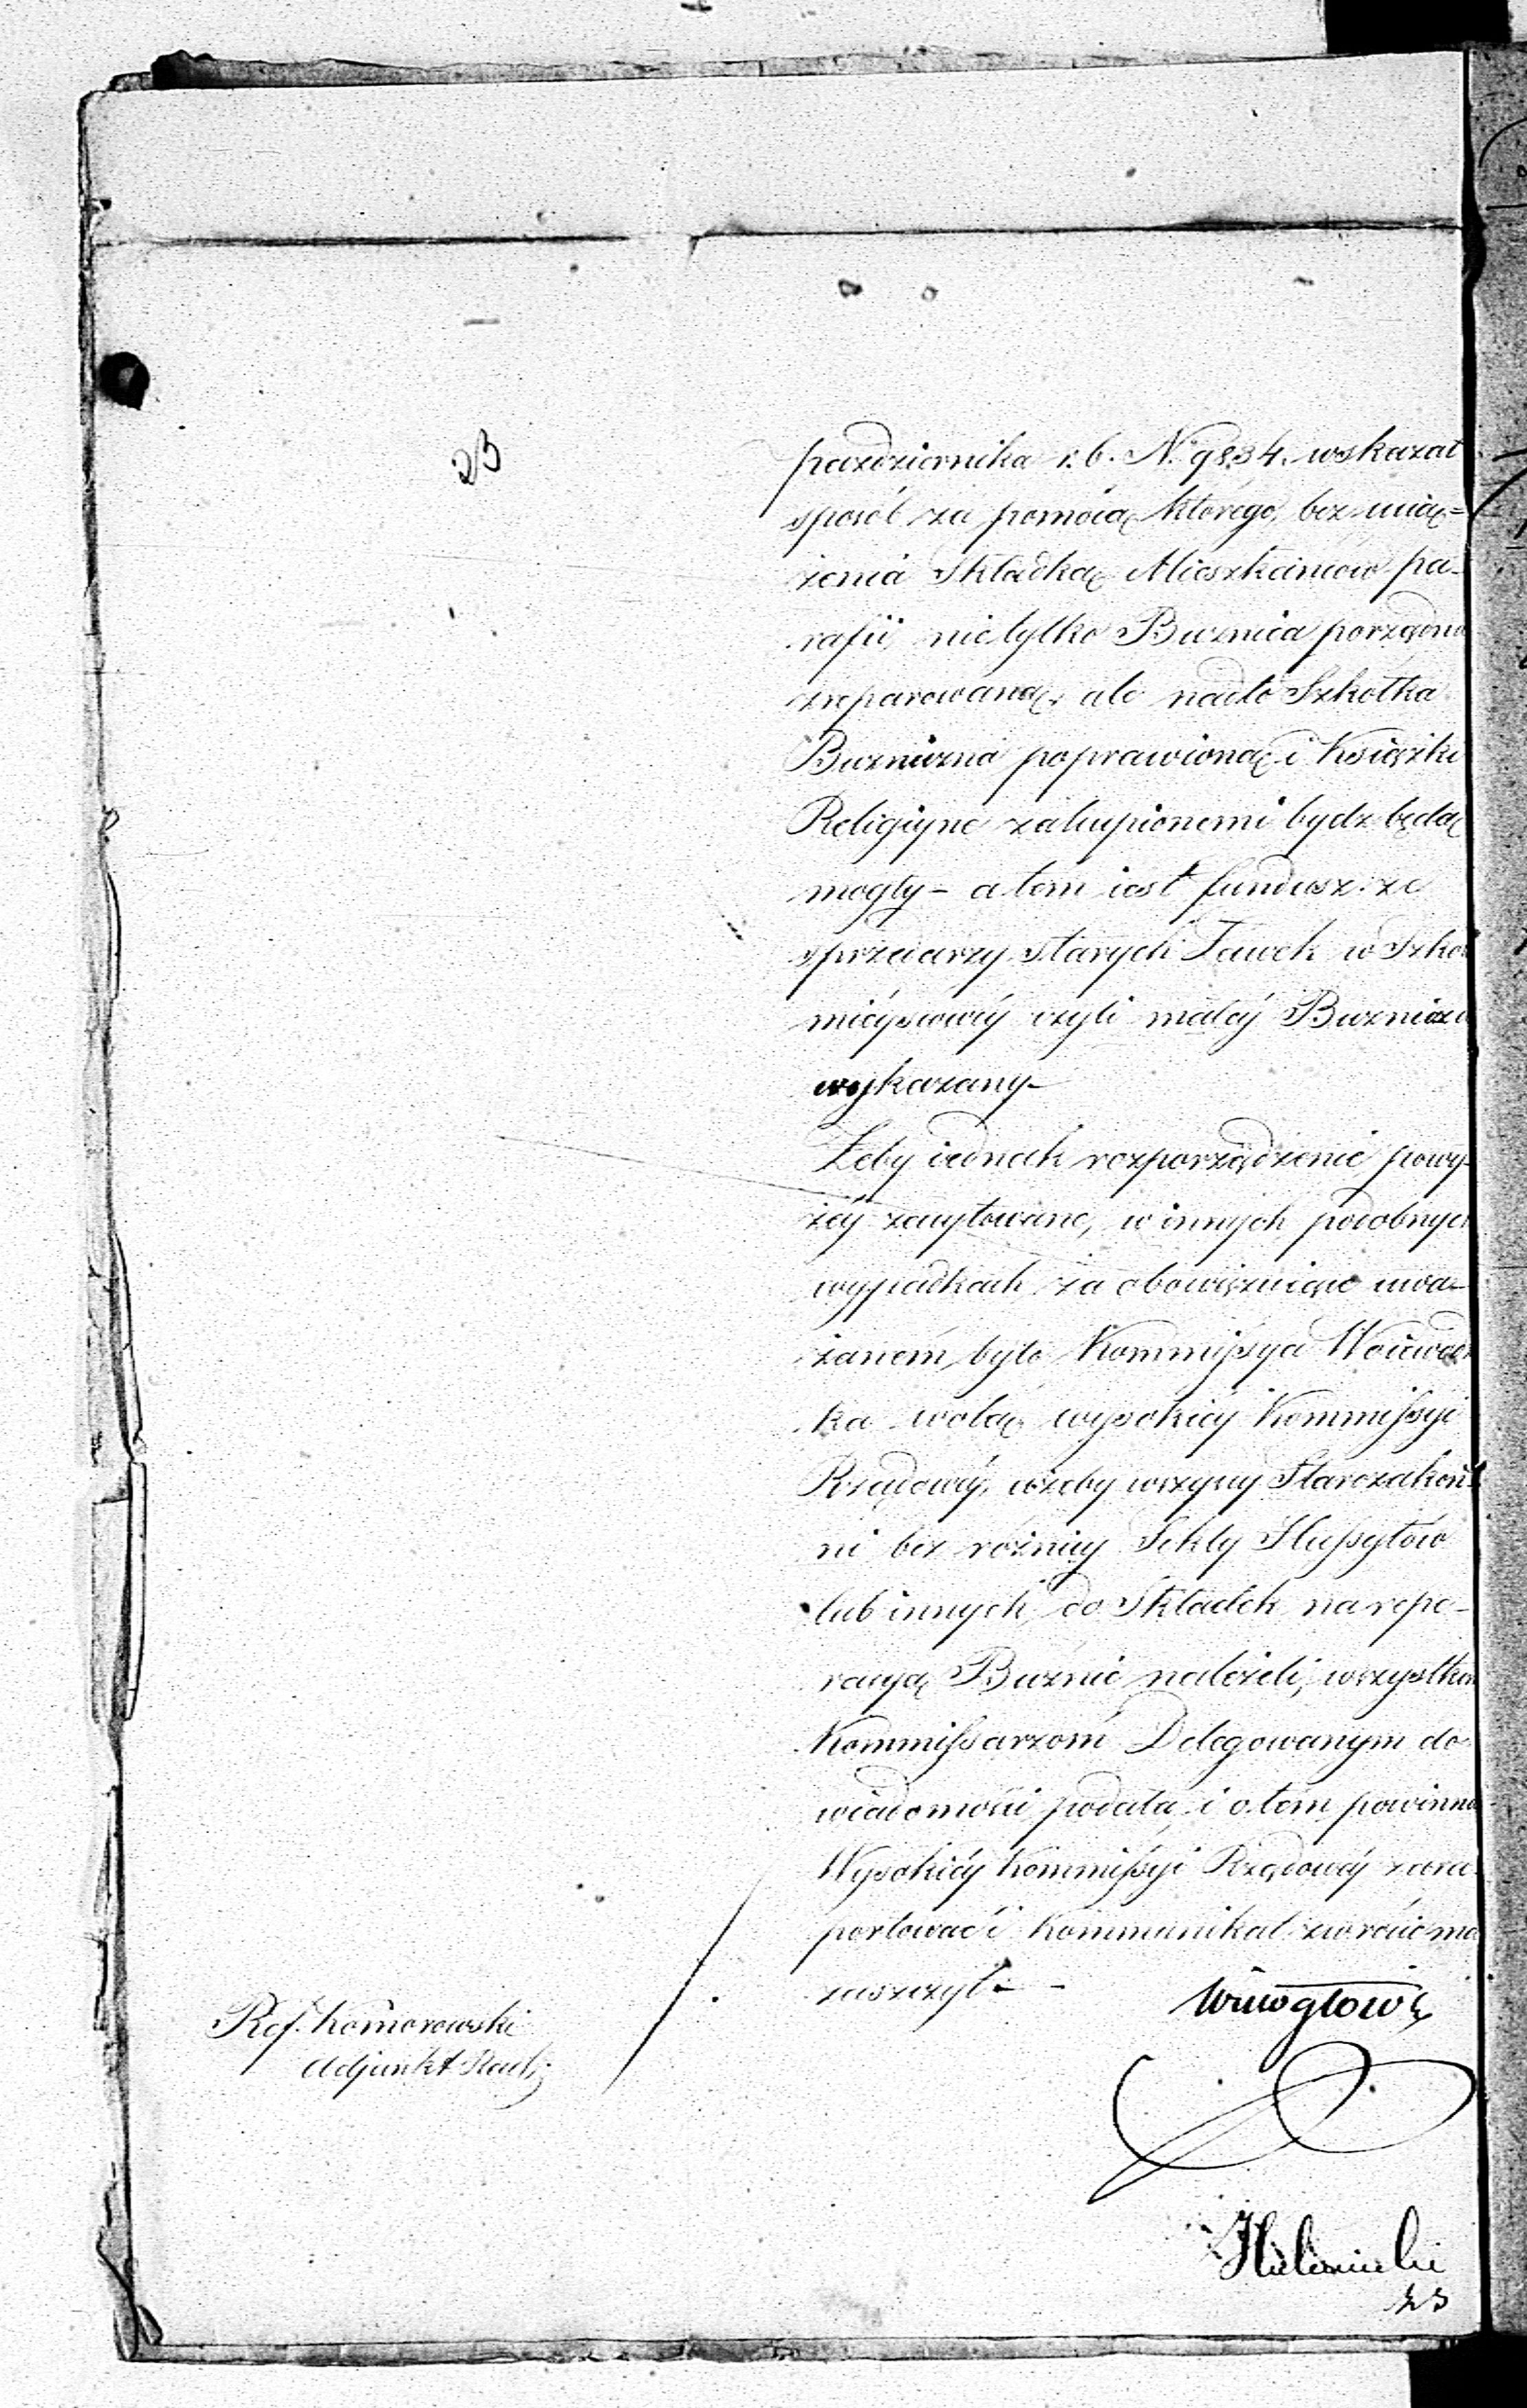 października r. b. N. 9834. wskazał
sposób za pomocą którego, bez ucią=
żenia Składką Mieszkańców pa-
rafii, nie tylko Buznica porządno
zreparowaną, ale nadto Szkołka
Buznizna poprawioną i Książki
Religiyne zakupionemi bydz będą
mogły – a tem iest fundusz ze
sprzedarzy starych Ławek w Szko
mieyscowéy czyli małéy Buznicz
wykazany –
Żeby iednak rozporządzenie powy-
żéy zacytowane, w innych podobnych
wypadkach za obowięzuiące uwa-
żaném było Kommissya Woiewodz
ka wolą wysokiéy Kommissyi
Rządowéy, ażeby wszyscy Starozakon
ni bez różnicy Sekty Hussytów
lub innych, do Składek na repe-
racyą Buznic należeli, wszystkim
Kommissarzom Delegowanym do
wiadomości podała, i o tem powinna
Wysokiéy Kommissyi Rządowéy zara-
portować i Kommunikat zwrócić ma
zaszczyt –
Wielogłowski
Ref. Komorowski
Adjunkt Rady
23